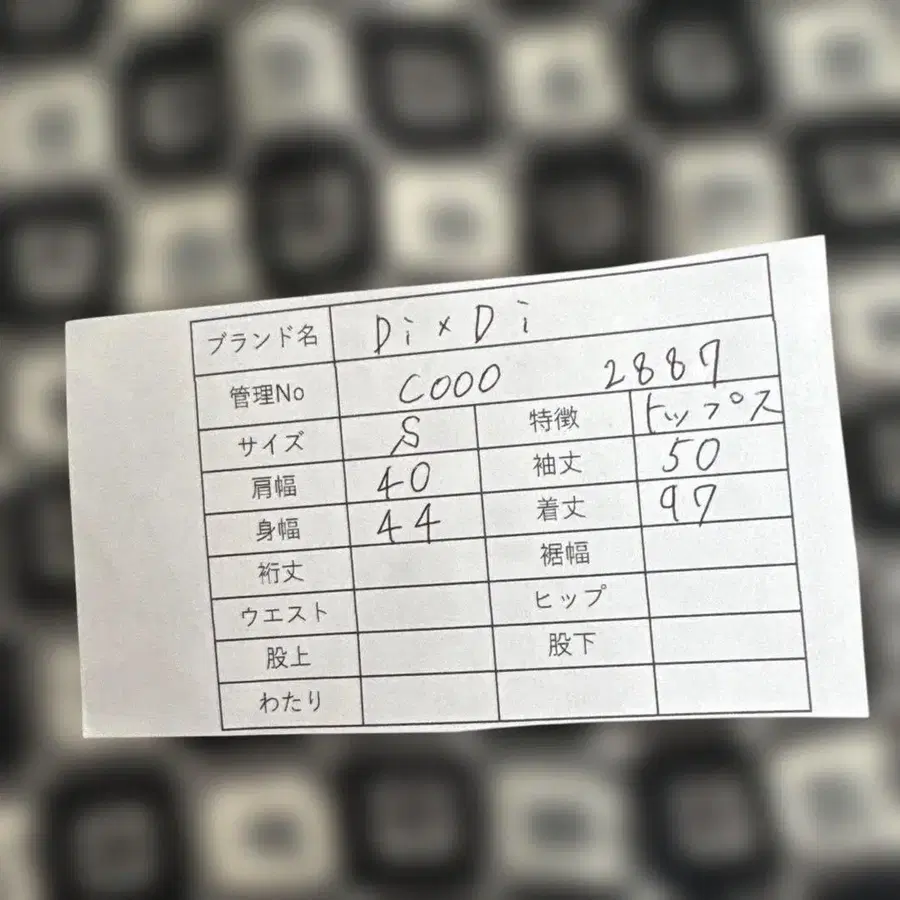 ブランド名 Di×Di
管理No C000 2887
サイズ S 特徴 トップス
肩幅 40 袖丈 50
身幅 44 着丈 97
裄丈 裾幅
ウエスト ヒップ
股上 股下
わたり